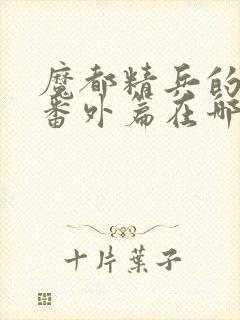 魔都精兵的
番外篇在哪
十片葉子